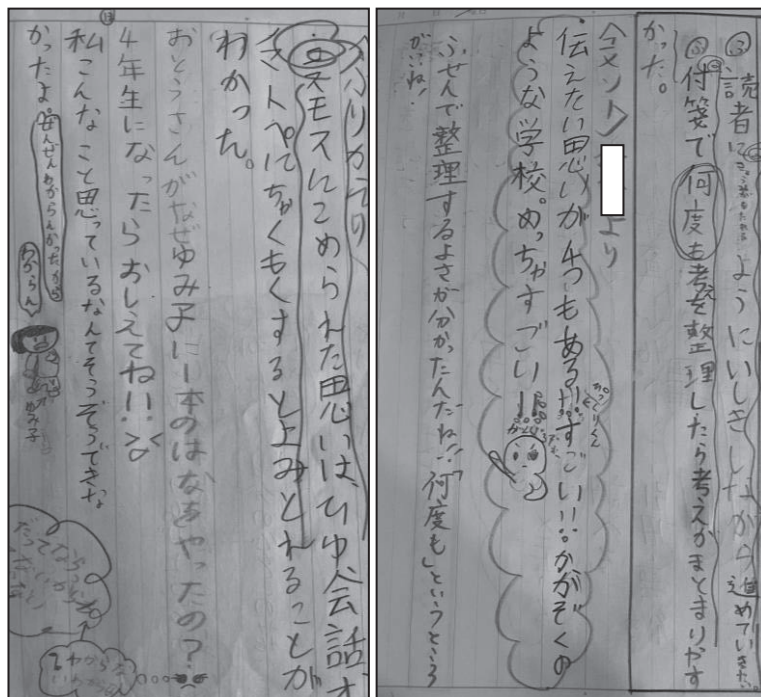 ③読者に ようにいしきしながら進めていきたい。
③付箋で何度も考えを整理したら考えがまとまりやす
かった。
より
伝えたい思いが4つもある!!すごい!!かぞくの
ような学校。めっちゃすごい!!
ふせんで整理するよさが分かったんだね!!「何度も」というところ
がいいね!
⑬
ふりかえり
コスモスにこめられた思いは、ひゆ会話文
ちゃくもくすると上みとれることが
わかった。
おとうさんがなぜゆみ子に一本のはなをやったの?
4年生になったらおしえてね!!
私こんなこと思っているなんてそうぞうできな
かったよ。
ぜんぜんわからんかったから
わからん
ゆみ子